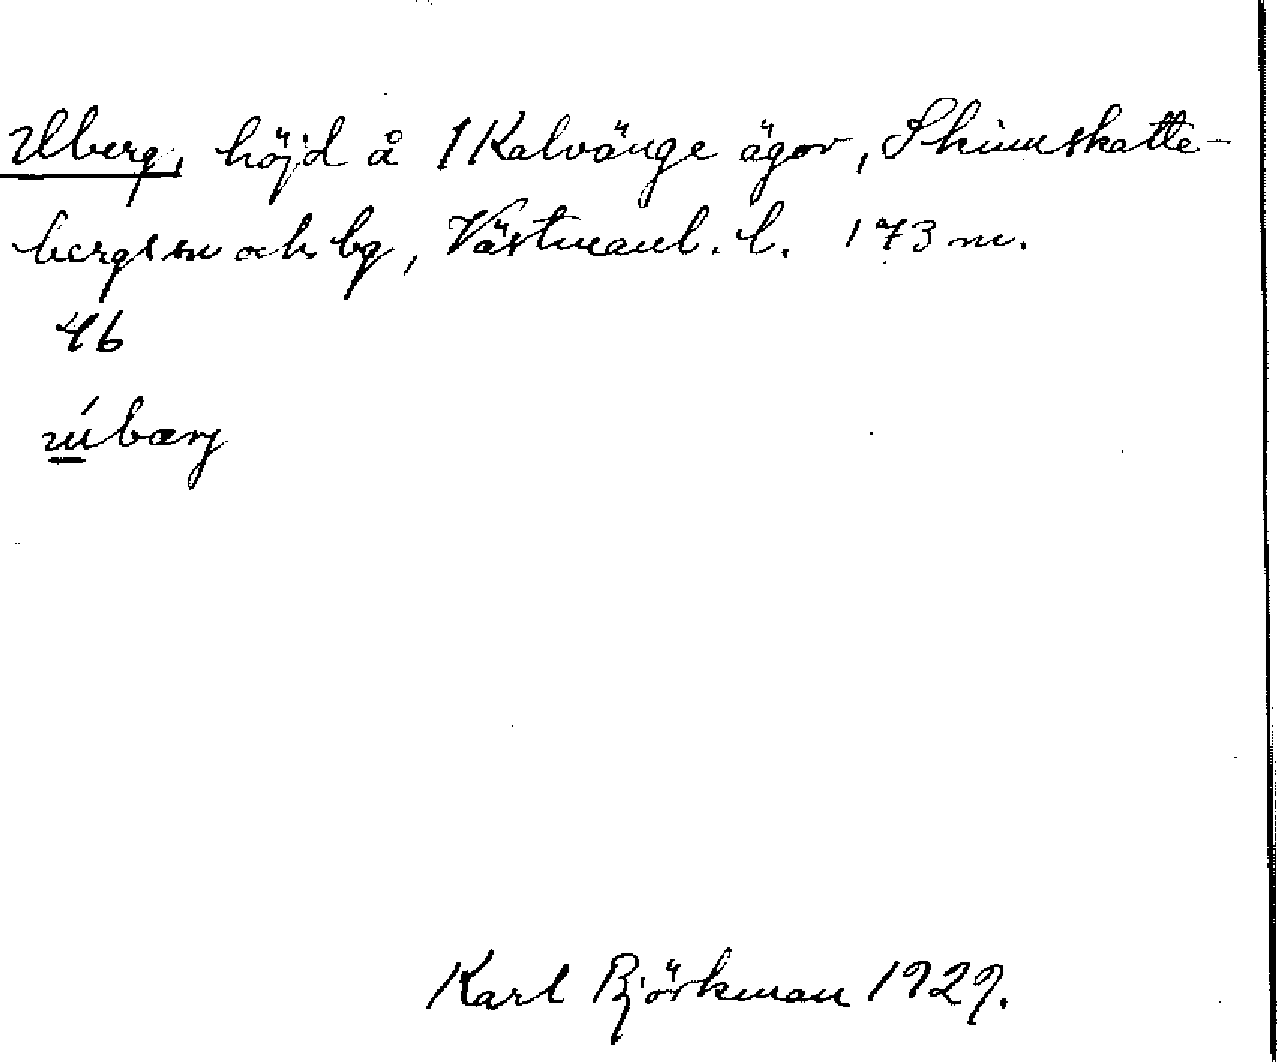 Ulberg, höjd å 1 Kalvänge ägor, Skinnskatte-
bergs sn och bg, Västmanl. l. 173 m.
46
ú̲bærj
Karl Björkman 1929.